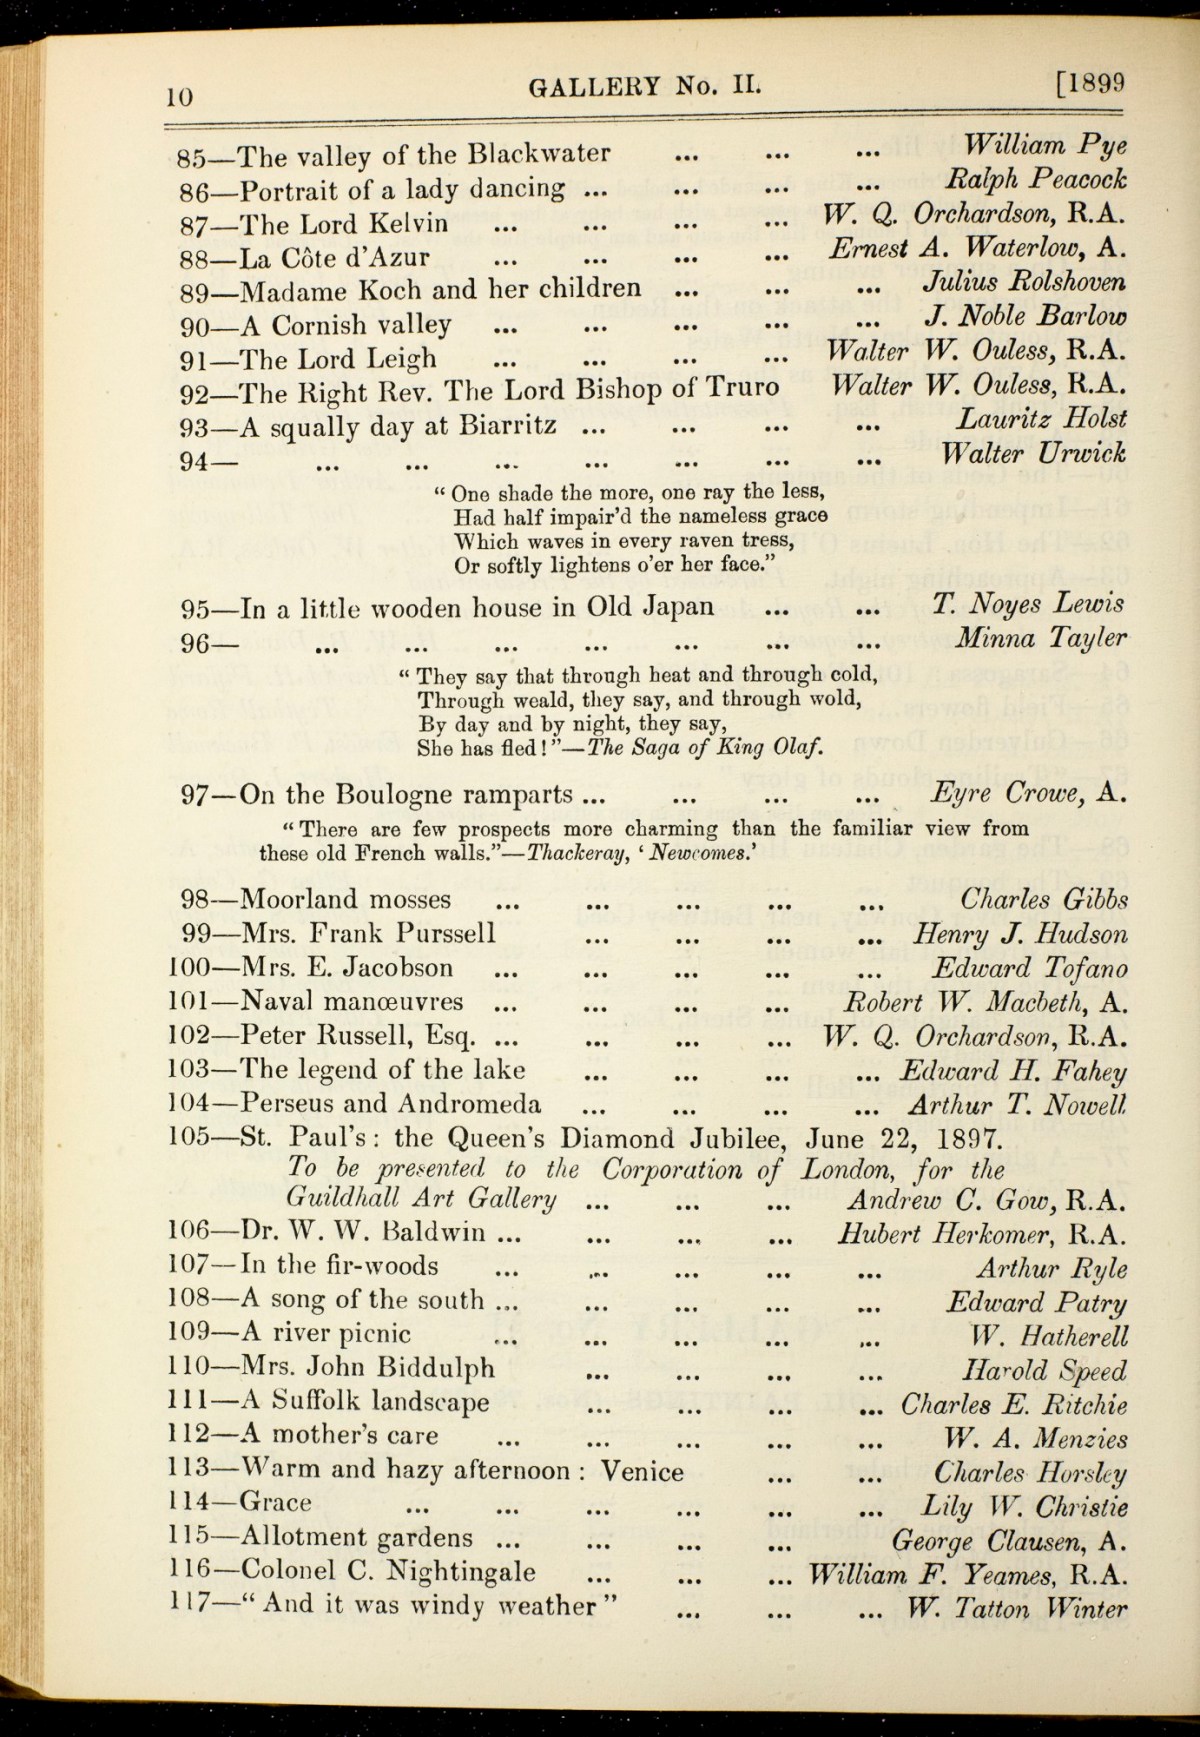 10 GALLERY No. II. [1899
85—The valley of the Blackwater ... ... ... William Pye
86—Portrait of a lady dancing ... ... ... ... Ralph Peacock
87—The Lord Kelvin ... ... ... ... W. Q. Orchardson, R.A.
88—La Côte d'Azur ... ... ... ... Ernest A. Waterlow, A.
89—Madame Koch and her children ... ... ... Julius Rolshoven
90—A Cornish valley ... ... ... ... ... J. Noble Barlow
91—The Lord Leigh ... ... ... ... Walter W. Ouless, R.A.
92—The Right Rev. The Lord Bishop of Truro Walter W. Ouless, R.A.
93—A squally day at Biarritz ... ... ... ... Lauritz Holst
94— ... ... ... ... ... ... ... Walter Urwick
“ One shade the more, one ray the less,
Had half impair'd the nameless grace
Which waves in every raven tress,
Or softly lightens o'er her face.”
95—In a little wooden house in Old Japan ... ... T. Noyes Lewis
96— ... ... ... ... ... ... ... Minna Tayler
“ They say that through heat and through cold,
Through weald, they say, and through wold,
By day and by night, they say,
She has fled ! ”—The Saga of King Olaf.
97—On the Boulogne ramparts ... ... ... ... Eyre Crowe, A.
“ There are few prospects more charming than the familiar view from
these old French walls.”—Thackeray, ‘ Newcomes.’
98—Moorland mosses ... ... ... ... ... Charles Gibbs
99—Mrs. Frank Purssell ... ... ... ... Henry J. Hudson
100—Mrs. E. Jacobson ... ... ... ... ... Edward Tofano
101—Naval manœuvres ... ... ... ... Robert W. Macbeth, A.
102—Peter Russell, Esq. ... ... ... ... W. Q. Orchardson, R.A.
103—The legend of the lake ... ... ... ... Edward H. Fahey
104—Perseus and Andromeda ... ... ... ... Arthur T. Nowell
105—St. Paul's : the Queen's Diamond Jubilee, June 22, 1897.
To be presented to the Corporation of London, for the
Guildhall Art Gallery ... ... ... Andrew C. Gow, R.A.
106—Dr. W. W. Baldwin ... ... ... ... Hubert Herkomer, R.A.
107—In the fir-woods ... ... ... ... ... Arthur Ryle
108—A song of the south ... ... ... ... ... Edward Patry
109—A river picnic ... ... ... ... ... W. Hatherell
110—Mrs. John Biddulph ... ... ... ... Harold Speed
111—A Suffolk landscape ... ... ... ... Charles E. Ritchie
112—A mother's care ... ... ... ... ... W. A. Menzies
113—Warm and hazy afternoon : Venice ... ... Charles Horsley
114—Grace ... ... ... ... ... ... Lily W. Christie
115—Allotment gardens ... ... ... ... George Clausen, A.
116—Colonel C. Nightingale ... ... ... William F. Yeames, R.A.
117—“ And it was windy weather ” ... ... ... W. Tatton Winter